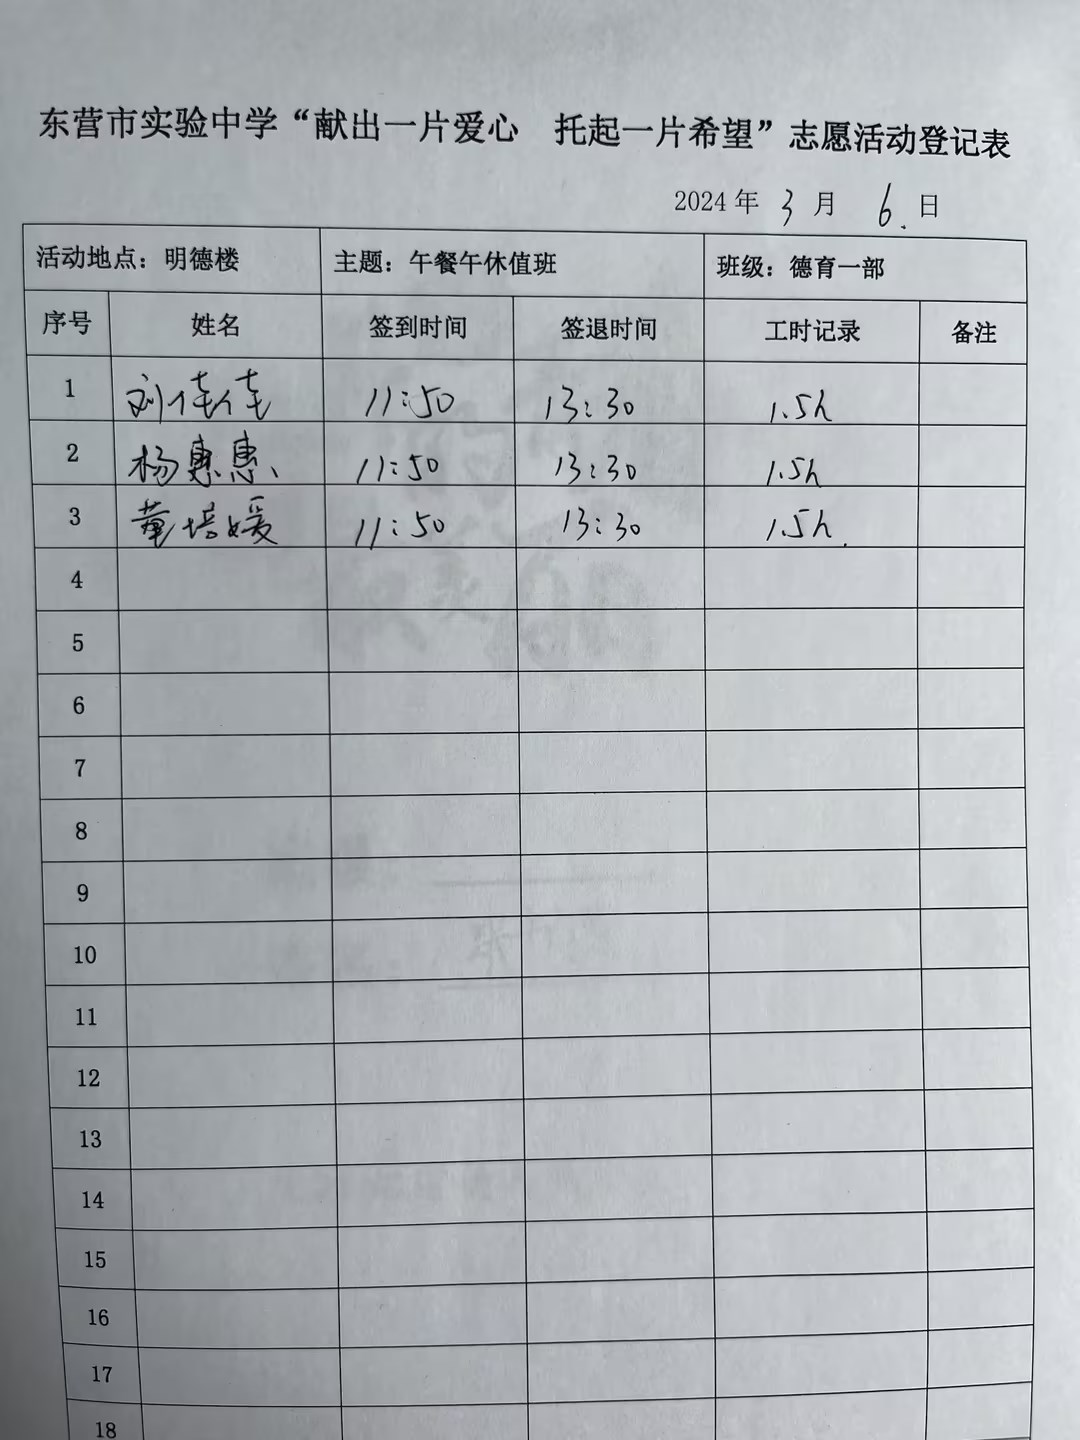 东营市实验中学“献出一片爱心 托起一片希望”志愿活动登记表
2024年 3 月 6. 日
活动地点：明德楼 主题：午餐午休值班 班级：德育一部
序号 姓名 签到时间 签退时间 工时记录 备注
1 刘佳佳 11:50 13:30 1.5h
2 杨惠惠、 11:50 13:30 1.5h
3 董培媛 11:50 13:30 1.5h.
4
5
6
7
8
9
10
11
12
13
14
15
16
17
18